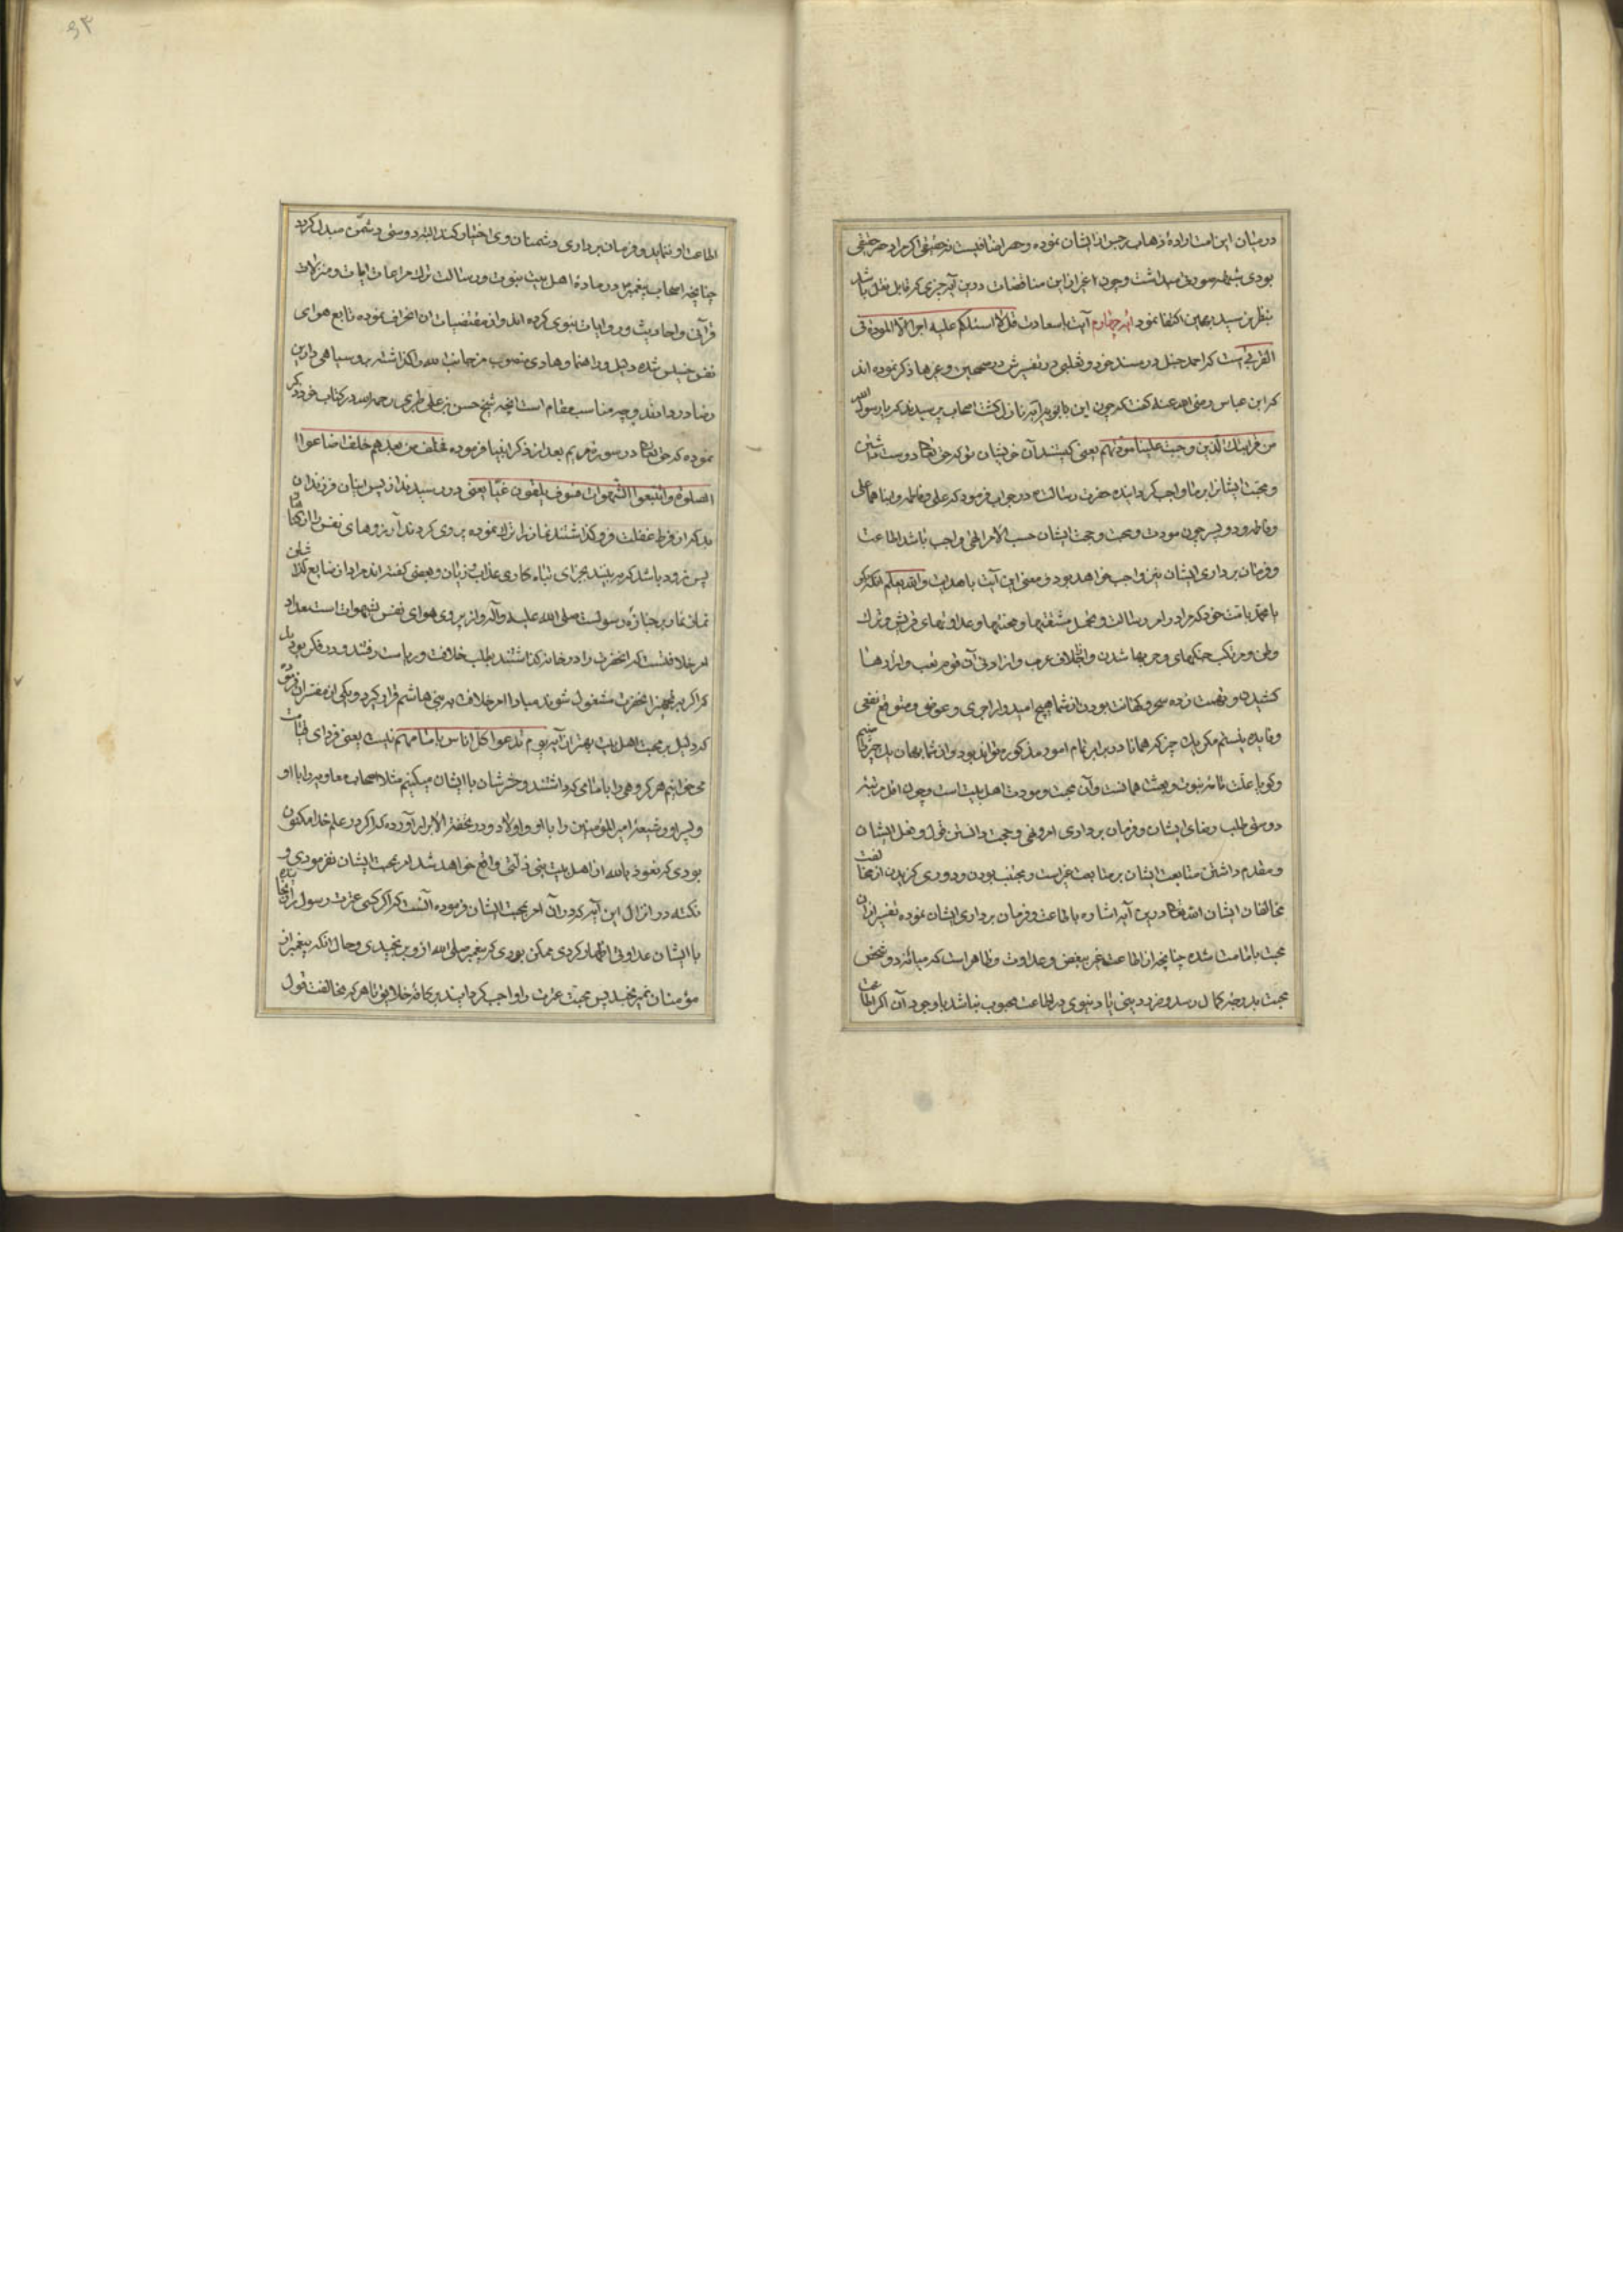 درمیان این امت اراده ذهاب رجس از ایشان نموده و حصر اضافیست نه حقیقی اگر مراد حصر حقیقی
بودی شبهه صورتی میداشت و چون غیر از این مناقضات درین آیه چیزی که قابل نقل باشد
بنظر نرسید بهمین اکتفا نمود آیه چهارم آیت با سعادت قل لا اسئلکم علیه اجرا الا المودة فی
القربی است که احمد حنبل در مسند خود و ثعلبی در تفسیرش در صحیحین و غیرها ذکر نموده اند
که ابن عباس رضی الله عنه گفت که چون این آیه نازل گشت اصحاب پرسیدند که یا رسول الله
من قرابتک الذین وجبت علینا مودتهم یعنی کیستند آن خویشان تو که حق تعالی دوست داشتن
و محبت ایشانرا بر ما واجب گردانیده حضرت رسالت در جواب فرمود که علی و فاطمه و ابناهما علی
و فاطمه و دو پسر چون مودت و محبت ایشان حسب الامر الهی واجب باشد اطاعت
و فرمان برداری ایشان نیز واجب خواهد بود و معنی این آیت با هدایت والله یعلم آنکه بگو
یا محمد بامت خود که مرا در امر رسالت و تحمل مشقتها و محنتها و عداوتهای قریش و ترک
وطن و مرتکب جنگهای و حربها شدن و اختلاف عرب و ازار دنی آن قوم تعب و آزارها
کشیدن و تهمت زده سحر و کهانت بودن از شما هیچ امیدوار اجری و عوضی و متوقع نفعی
و فایده نیستم مگر یک چیز که همانا در برابر تمام امور مذکوره تواند بود و از شما بهمان یک چیز
و گویا علت تامه نبوت و بعثت همانست و آن محبت و مودت اهل بیت است و چون اقل مرتبه
دوستی طلب رضای ایشان و فرمان برداری امر و نهی و حجت دانستن قول و فعل ایشان
و مقدم داشتن متابعت ایشان بر متابعت غیر است و مجتنب بودن و دوری گزیدن از مخالفت
مخالفان ایشان الله تعالی درین آیه اشاره باطاعت و فرمان برداری ایشان نموده تفسیر از آن
محبت باتمامت شده چنانچه از اطاعت غیر ببغض و عداوت و ظاهر است که میانه دو شخص
محبت بدرجه کمال رسد و ضرر دینی یا دنیوی در اطاعت محبوب نباشد با وجود آن اگر اطاعت
اطاعت او ننماید و فرمان برداری دشمنان وی اختیار کند البته دوستی دشمنی مبدل گردد
چنانچه اصحاب پیغمبر در ماده اهل بیت نبوت و رسالت ترک مراعات ایات و منزلات
قرآنی و احادیث و روایات نبوی کرده اند و از مقتضیات آن انحراف نموده تابع هوای
نفس خسیس شده دلیل و راهنما و هادی منصوب من جانب الله واگذاشته بروسیاهی دارین
رضا در دادند و چه مناسب مقام است آنچه شیخ حسن بن علی طبری رحمه الله در کتاب خود ذکر
نموده که حق تعالی در سوره مریم بعد از ذکر انبیا فرموده فخلف من بعدهم خلف اضاعوا
الصلوة و اتبعوا الشهوات فسوف یلقون غیا یعنی در رسیدند از پس ایشان فرزندان
بد که از فرط غفلت فروگذاشتند نماز را ترک نموده پیروی کردند آرزوهای نفس را
پس زود باشد که ببینند جزای تباه کاری عذاب و زیان و بعضی گفته اند مراد از ضایع کردن
نماز نماز بر جنازه رسولست صلی الله علیه و آله و از پیروی هوای نفس شهوات است
امر خلافتست که آنحضرت را در خانه گذاشتند بطلب خلافت و ریاست رفتند و در فکر بودند
که اگر بتجهیز آنحضرت مشغول شوند مبادا امر خلافت به بنی هاشم قرار گیرد و یکی از مفسران
که دلیل بر محبت اهل بیت بهتر از آیه یوم ندعوا کل اناس بامامهم نیست یعنی فردای قیامت
می خوانیم هر گروهی را با امامی که داشتند و حشرشان با ایشان میکنیم مثلا اصحاب معاویه را با او
و پسر او و شیعه امیر المؤمنین را با او و اولاد و در تحفة الابرار آورده که اگر در علم خدا مکنون
بودی که نعوذ بالله از اهل بیت نبی ذلتی واقع خواهد شد امر بمحبت ایشان نفرمودی و
نکته در انزال این آیه کردن و آن امر بمحبت ایشان فرموده آنست که اگر کسی عترت رسول را
با ایشان عداوتی اظهار کردی ممکن بودی که پیغمبر صلی الله از و برنجیدی و حال آنکه پیغمبر از
مؤمنان نمیرنجید پس محبت عترت را واجب گردانید بر کافه خلایق تا هر که مخالفت قول